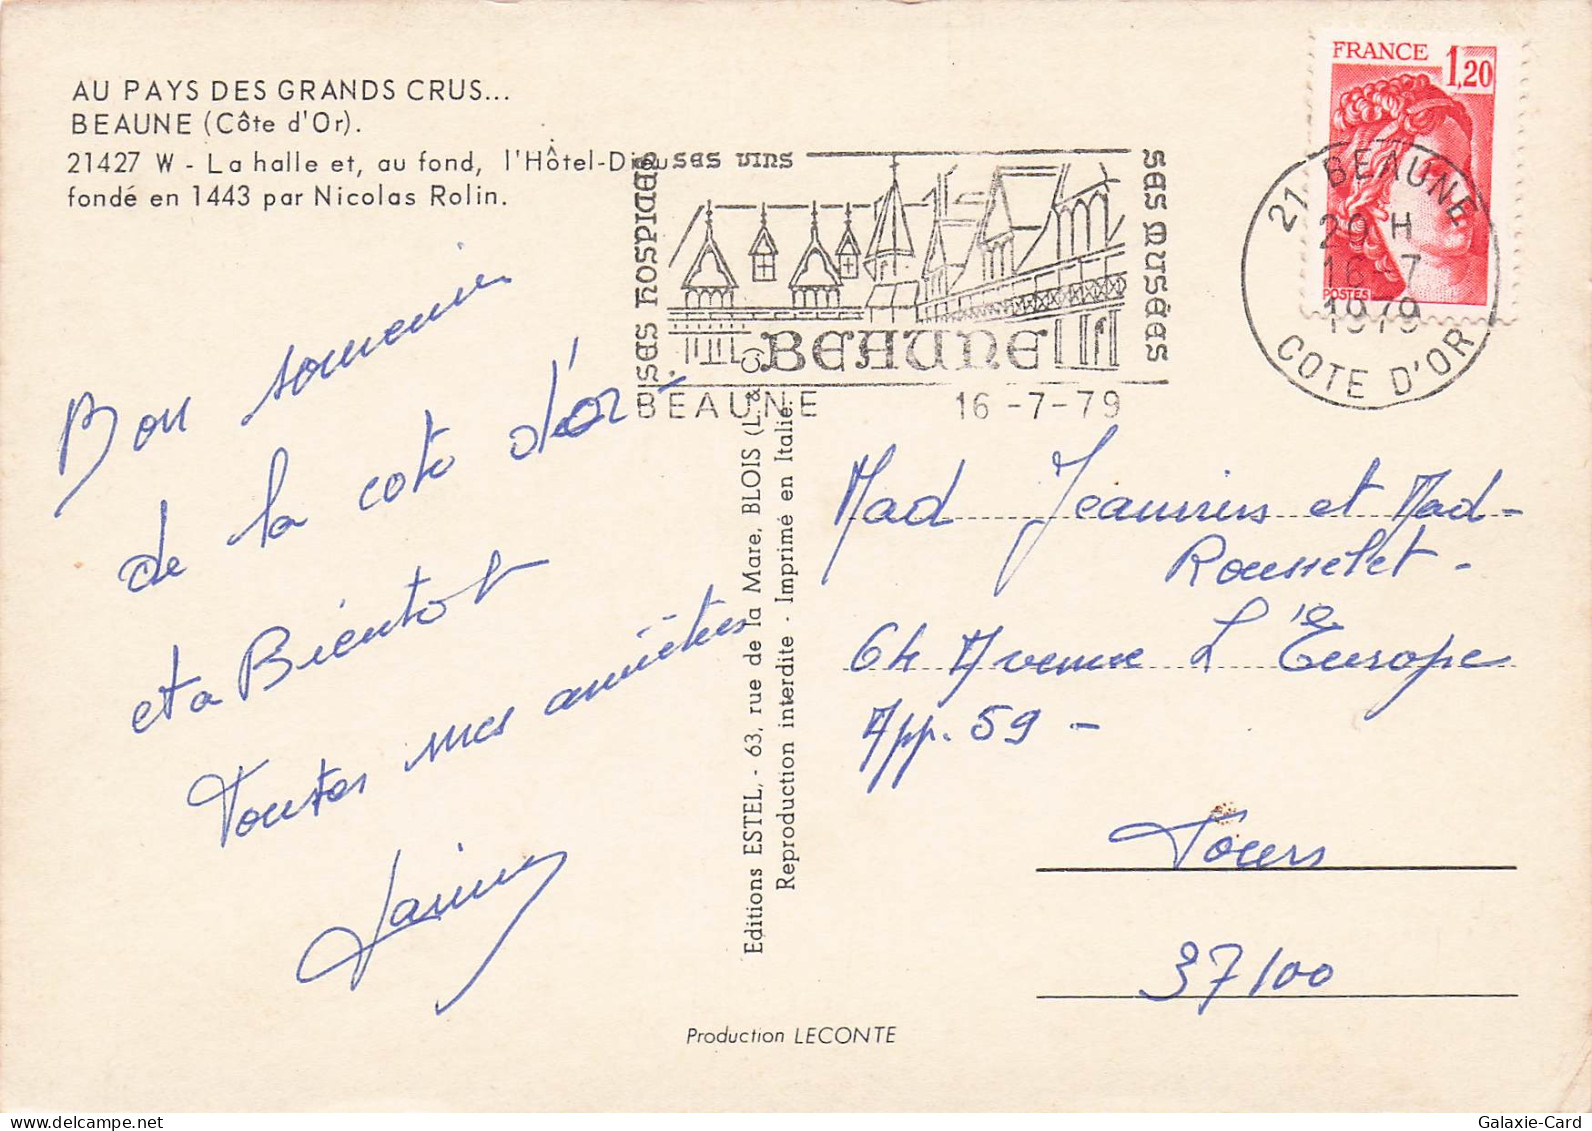 AU PAYS DES GRANDS CRUS...
BEAUNE (Côte d'Or).
21427 W - La halle et, au fond, l'Hôtel-Dieu
fondé en 1443 par Nicolas Rolin.
Bon souvenir
de la cote d'or -
et a Bientot
Toutes mes amitiées
SES HOSPICES
SES VINS
SES MUSÉES
BEAUNE
BEAUNE 16-7-79
FRANCE 1,20
POSTES
21 BEAUNE
20 H
16-7
1979
COTE D'OR
Editions ESTEL, - 63, rue de la Mare, BLOIS (L. & C.)
Reproduction interdite - Imprimé en Italie.
Mad Jeannins et Mad -
Rousselet -
64 Avenue L'Europe
App. 59 -
Tours
37100
Production LECONTE
Galaxie-Card